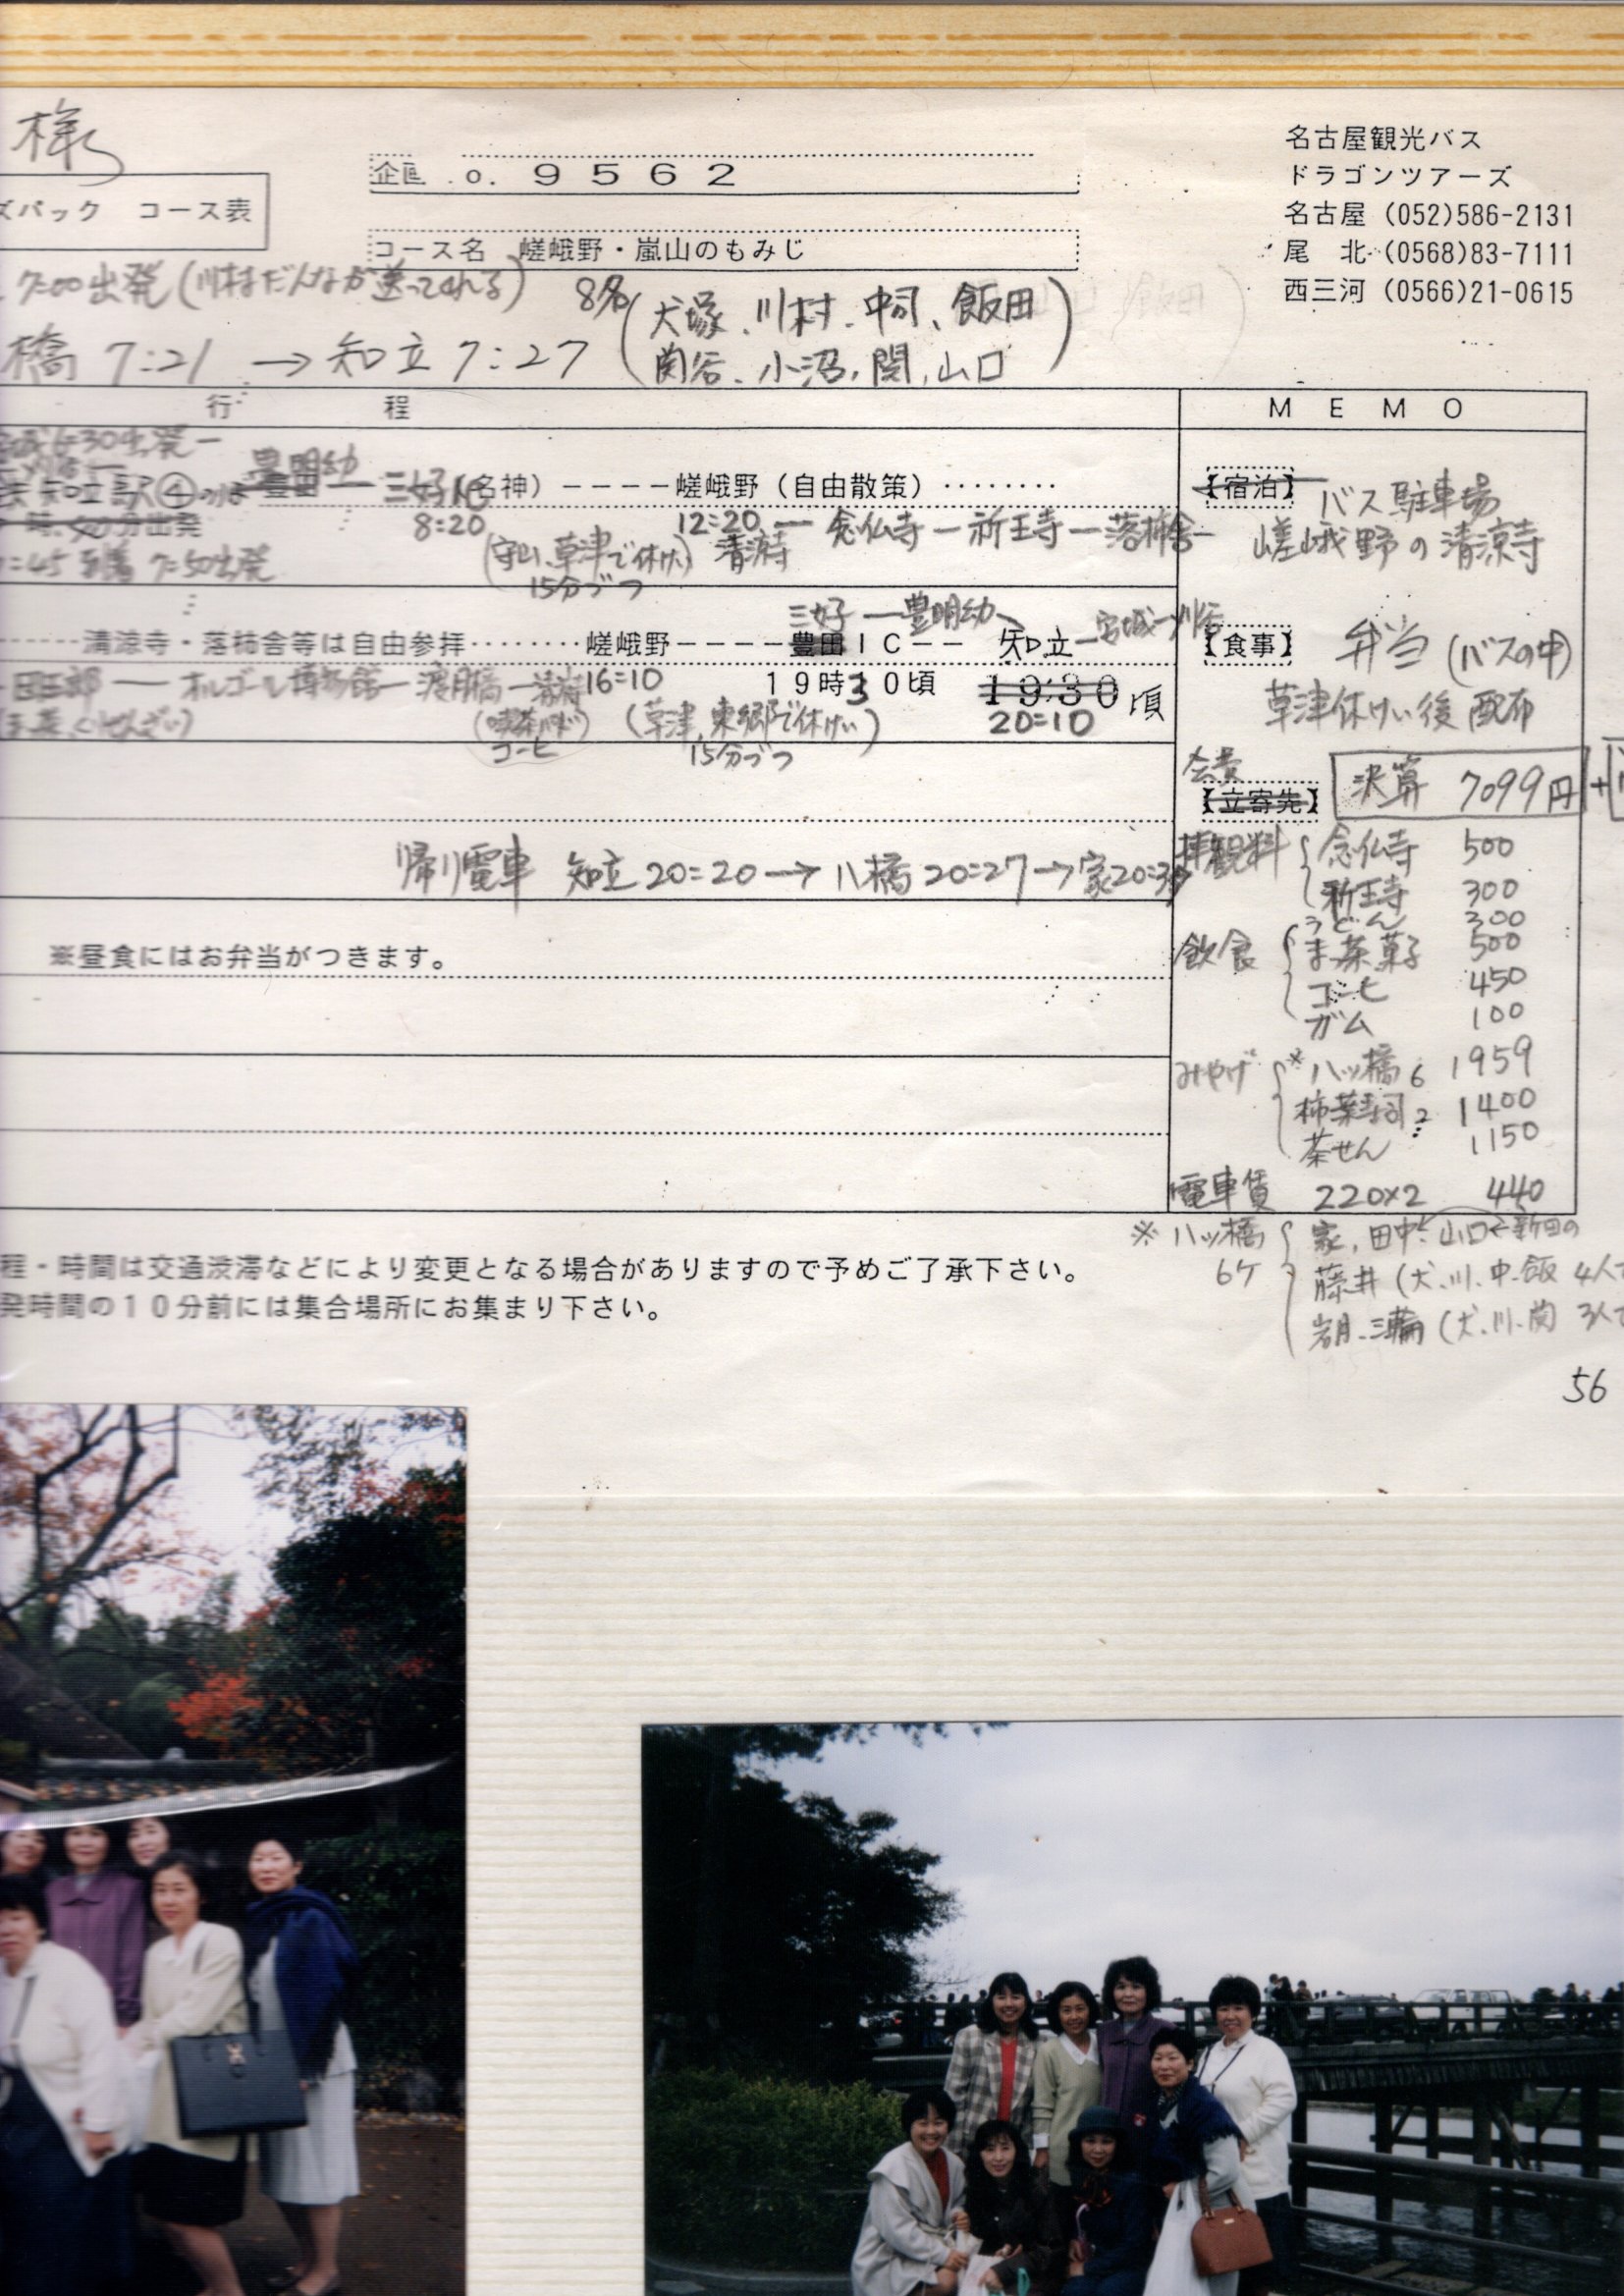 様
企画 o. 9562
ズパック コース表
コース名 嵯峨野・嵐山のもみじ
名古屋観光バス
ドラゴンツアーズ
名古屋 (052)586-2131
尾 北 (0568)83-7111
西三河 (0566)21-0615
7:00出発(川村だんなが送ってくれる)
8名(犬塚、川村、中司、飯田
関谷、小沼、関、山口)
橋 7:21 → 知立 7:27
行 程
MEMO
6:30出発ー
豊明幼
知立駅④のりば 豊田 ー 三好IC(名神)ーーーー嵯峨野(自由散策)········
時 分出発
8:20
12:20 ー 念仏寺 ー 祈王寺 ー 落柿舎ー
(守山、草津で休けい)
15分づつ
清涼寺
:45 到着 7:50出発
【宿泊】 バス駐車場
嵯峨野の清涼寺
三好 ー 豊明幼
·······清涼寺・落柿舎等は自由参拝········嵯峨野ーーーー豊田ICーー 知立ー宮城ー刈谷
ー オルゴール博物館ー渡月橋ー清涼寺 16:10
19時30頃 19:30頃
20:10
コーヒ
(草津、東郷で休けい)
15分づつ
【食事】 弁当(バスの中)
草津休けい後 配布
会費
【立寄先】 決算 7099円+
帰り電車 知立20:20→八橋20:27→家20:3
拝観料 念仏寺 500
祈王寺 300
うどん 300
飲食 ま茶菓子 500
コーヒ 450
ガム 100
※昼食にはお弁当がつきます。
みやげ ※八ッ橋 6 1959
柿葉寿司 2 1400
茶せん 1150
電車賃 220×2 440
※八ッ橋 6ケ
家、田中、山口←新田の
藤井(犬、川、中、飯 4人で
岩月、三輪(犬、川、関 3人で
程・時間は交通渋滞などにより変更となる場合がありますので予めご了承下さい。
発時間の10分前には集合場所にお集まり下さい。
56